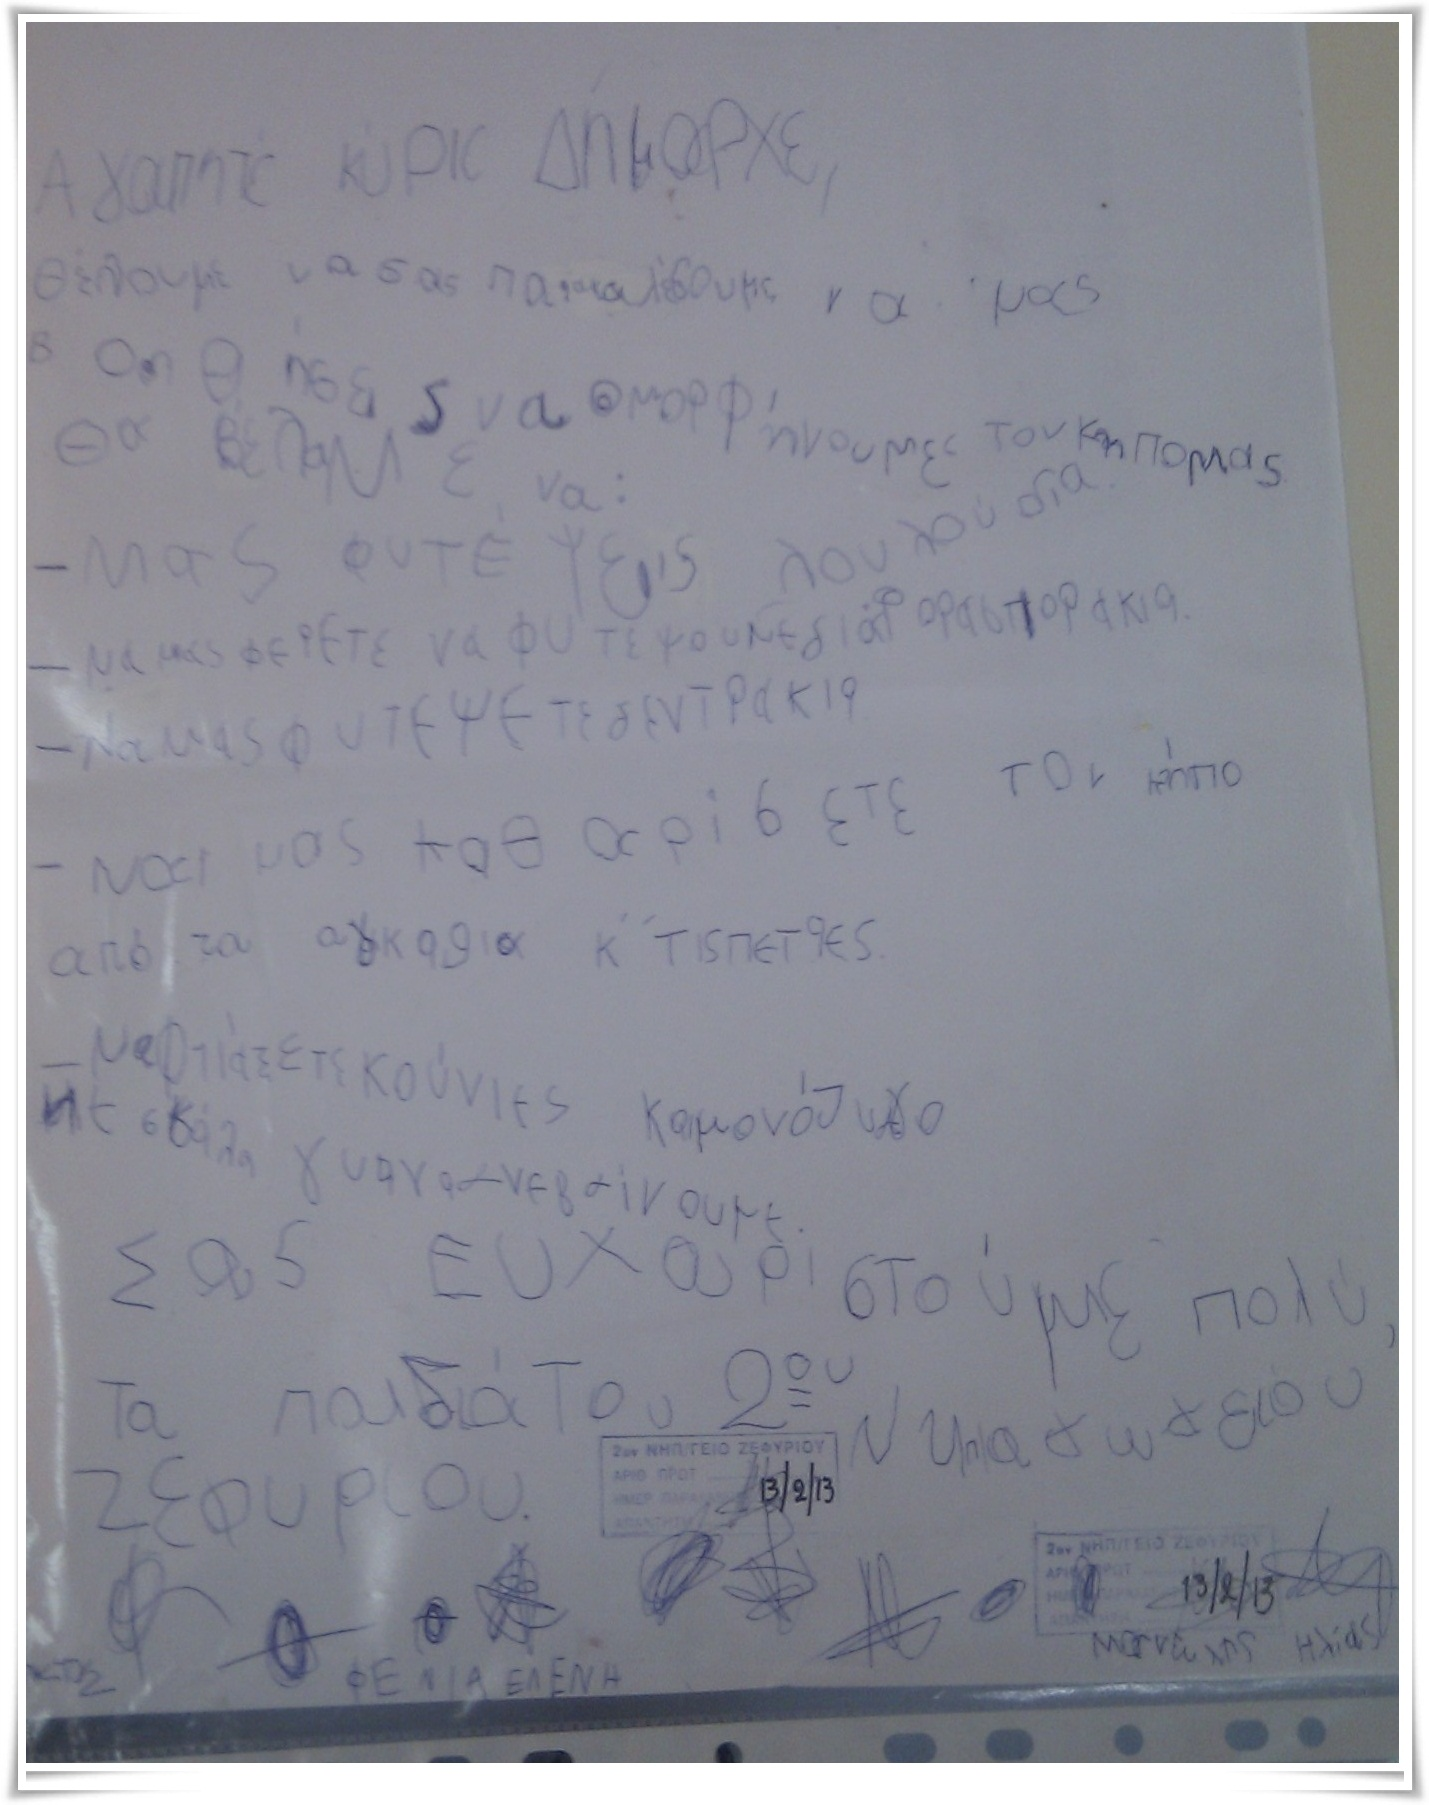 Αγαπητέ κύριε ΔήμαρχΕ,
Θέλουμε να σας παρακαλέσουμε να μας
Βοηθήσεις να ομορφήνουμε τον κηπο μας
Θα θέλαμε να:
– Μας φυτέψεις λουλούδια.
– Να μας φερετε να φυτεψουμε διάφορα σποράκια.
– Να μας φυτεψετε δεντρακια
– να μας καθαρίσετε τον κήπο
από τα αγκαθια κ' τις πετρες.
– Να φτιάξετε κούνιες και μονόζυγο
με σκάλα για να ανεβαίνουμε.
Σας ευχαριστούμε πολύ,
Τα παιδιά του 2ου Νηπιαγωγείου
Ζεφυρίου.
2ον ΝΗΠ/ΓΕΙΟ ΖΕΦΥΡΙΟΥ
ΑΡΙΘ ΠΡΩΤ
13/2/13
2ον ΝΗΠ/ΓΕΙΟ ΖΕΦΥΡΙΟΥ
ΑΡΙΘ ΠΡΩΤ
13/2/13
ΦΕΝΙΑ ΕΛΕΝΗ
Μανώλης Ηλίας